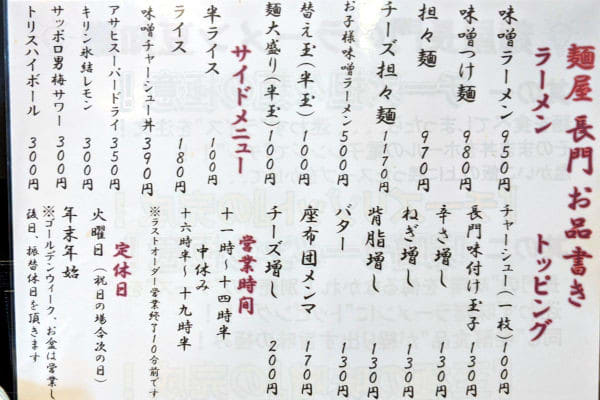 麺屋 長門 お品書き
ラーメン
味噌ラーメン 950円
味噌つけ麺 980円
担々麺 970円
チーズ担々麺 1170円
お子様味噌ラーメン 500円
替え玉(半玉) 100円
麺大盛り(半玉) 100円
サイドメニュー
半ライス 100円
ライス 180円
味噌チャーシュー丼 390円
アサヒスーパードライ 350円
キリン氷結レモン 300円
サッポロ男梅サワー 300円
トリスハイボール 300円
トッピング
チャーシュー(一枚) 100円
長門味付け玉子 130円
辛さ増し 130円
ねぎ増し 130円
背脂増し 130円
バター 130円
座布団メンマ 170円
チーズ増し 200円
営業時間
十一時〜十四時半
中休み
十六時半〜十九時半
※ラストオーダー営業終了10分前です
定休日
火曜日(祝日の場合次の日)
年末年始
※ゴールデンウイーク、お盆は営業し
後日、振替休日を頂きます